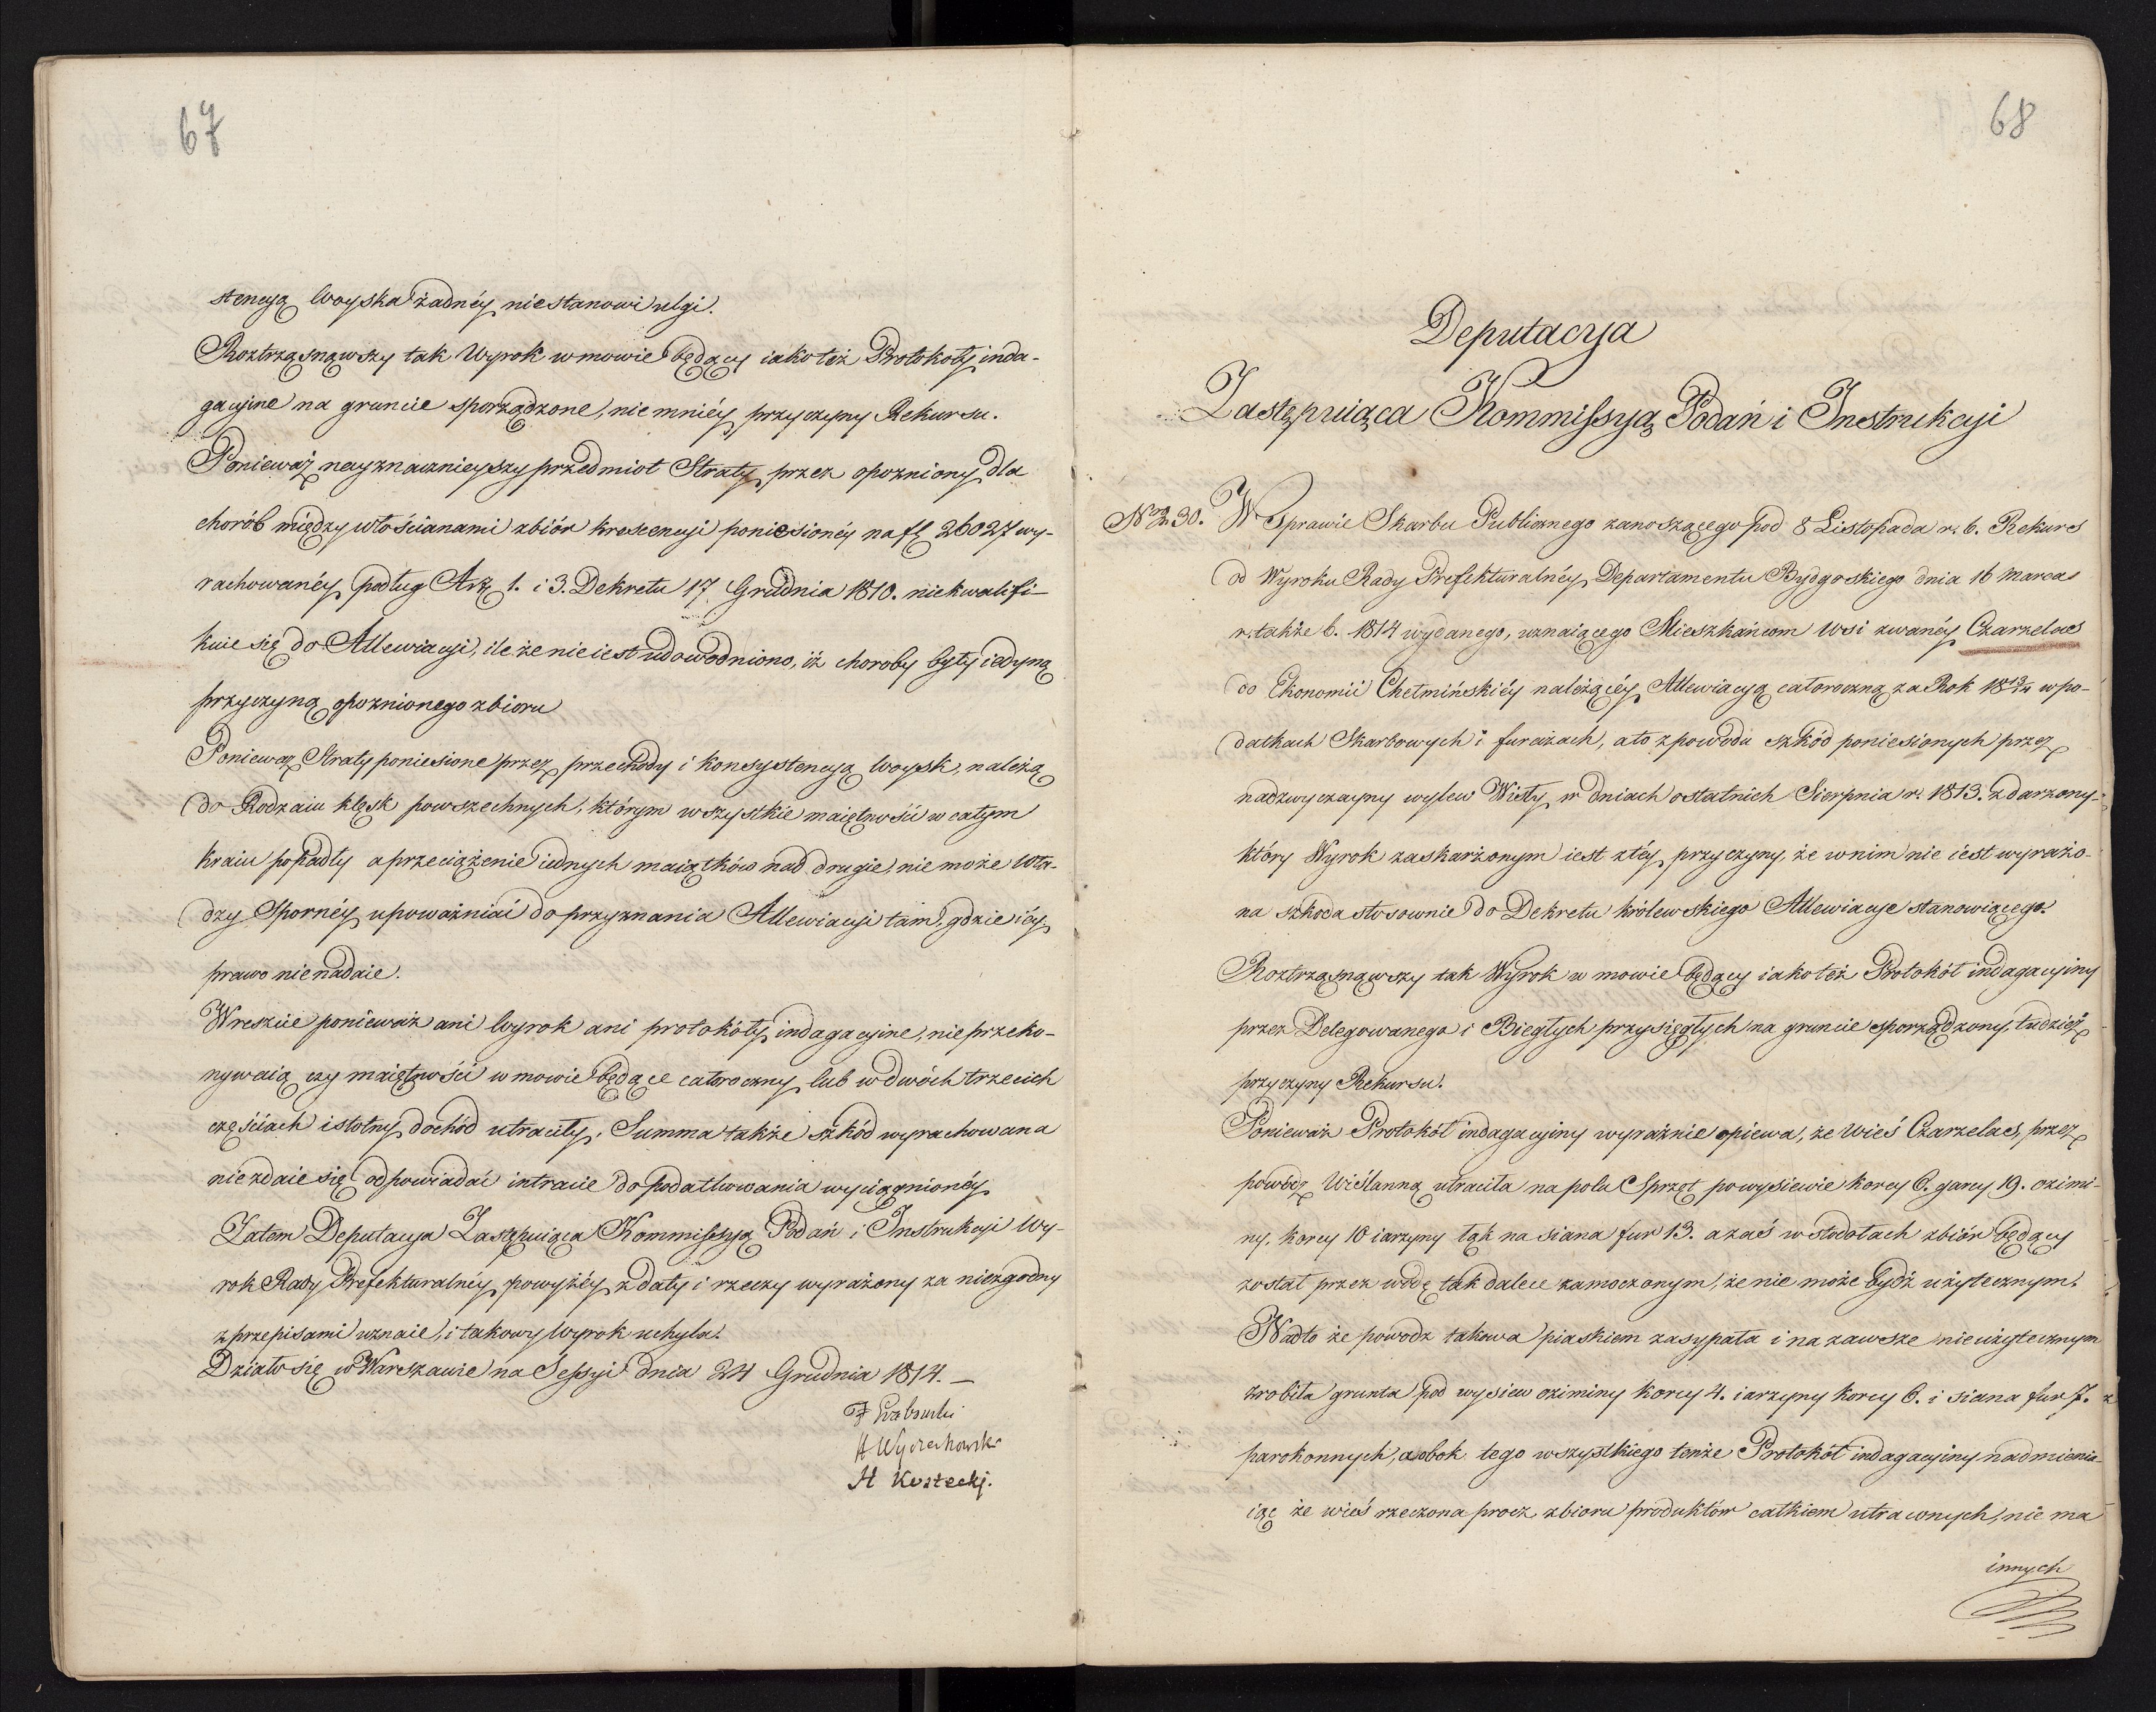 67
stencyą Woyska żadnéy niestanowi ulgi.
Roztrząsnąwszy tak Wyrok w mowie będący iako też Protokoły inda-
gacyjne na gruncie sporządzone, nie mniéy przyczyny Rekursu.
Ponieważ nayznacznieyszy przedmiot Straty przez opozniony dla
chorób między włościanami zbiór krescencyi poniesionéy na fl 26027 wy-
rachowanéy podług Art. 1. i 3. Dekretu 17. Grudnia 1810. niekwalifi-
kuie się do Allewiacyi, ile że nie iest udowodniono, iż choroby były iedyną
przyczyną opoznionego zbioru
Ponieważ Straty poniesione przez przechody i konsystencyą Woysk, należą
do Rodzaiu klęsk powszechnych, którym wszystkie maiętności w całym
Kraiu popadły a przeciążenie iednych maiątków nad drugie, nie może Wła-
dzy Spornéy upoważniać do przyznania Allewiacyi tam, gdzie iéy
prawo nienadaie.
Wreszcie ponieważ ani Wyrok ani protokóły indagacyine, nie przeko-
nywaią czy maiętności w mowie będące całoroczny lub w dwóch trzecich
częściach istotny dochód utraciły, Summa także szkód wyrachowana
niezdaie się odpowiadać intracie do podatkowania wyciągnionéy.
Zatem Deputacya Zastępuiąca Kommissyą Podań i Instrukcyi Wy-
rok Rady Prefekturalnéy powyżéy z daty i rzeczy wyrażony za niezgodny
z przepisami uznaie, i takowy Wyrok uchyla.
Działo się w Warszawie na Sessyi dnia 24 Grudnia 1814. —
F Grabowski
A Wyczechowski
A Kostecki.
68
Deputacya
Zastępuiąca Kommissyą Podań i Instrukcyi
Nro 230. W Sprawie Skarbu Publicznego zanoszącego pod 8 Listopada r. b. Rekurs
od Wyroku Rady Prefekturalnéy Departamentu Bydgoskiego dnia 16 Marca
r. także b. 1814 wydanego, uznaiącego Mieszkańcom Wsi zwanéy Czarzelas
do Ekonomii Chełmińskiéy należącéy Allewiacyą całoroczną za Rok 1813/14 w po-
datkach Skarbowych i furażach, a to z powodu szkód poniesionych przez
nadzwyczayny wylew Wisły w dniach ostatnich Sierpnia r. 1813. zdarzony-
który Wyrok zaskarżonym iest z téy przyczyny, że w nim nie iest wyrażo-
na szkoda stosownie do Dekretu królewskiego Allewiacye stanowiącego.
Roztrząsnąwszy tak Wyrok w mowie będący iako też Protokół indagacyiny
przez Delegowanego i Biegłych przysięgłych na gruncie sporządzony, tudzież
przyczyny Rekursu.
Ponieważ Protokół indagacyiny wyraźnie opiewa, że Wieś Czarzelas, przez
powódz Wiślanną utraciła na polu Sprzęt powysiewie korcy 6. garcy 19. ozimi-
ny, korcy 10 iarzyny łąk na siana fur 13. a zaś w stodołach zbiór będący
został przez wodę tak dalece zamoczonym, że nie może bydź użytecznym.
Nadto że powodz takowa piaskiem zasypała i na zawsze nieużytecznym
zrobiła grunta pod wysiew oziminy korcy 4. iarzyny korcy 6. i siana fur 7.
parokonnych, a obok tego wszystkiego tenże Protokół indagacyiny nadmienia-
iąc że wieś rzeczona procz zbioru produktów całkiem utraconych, nie ma
innych